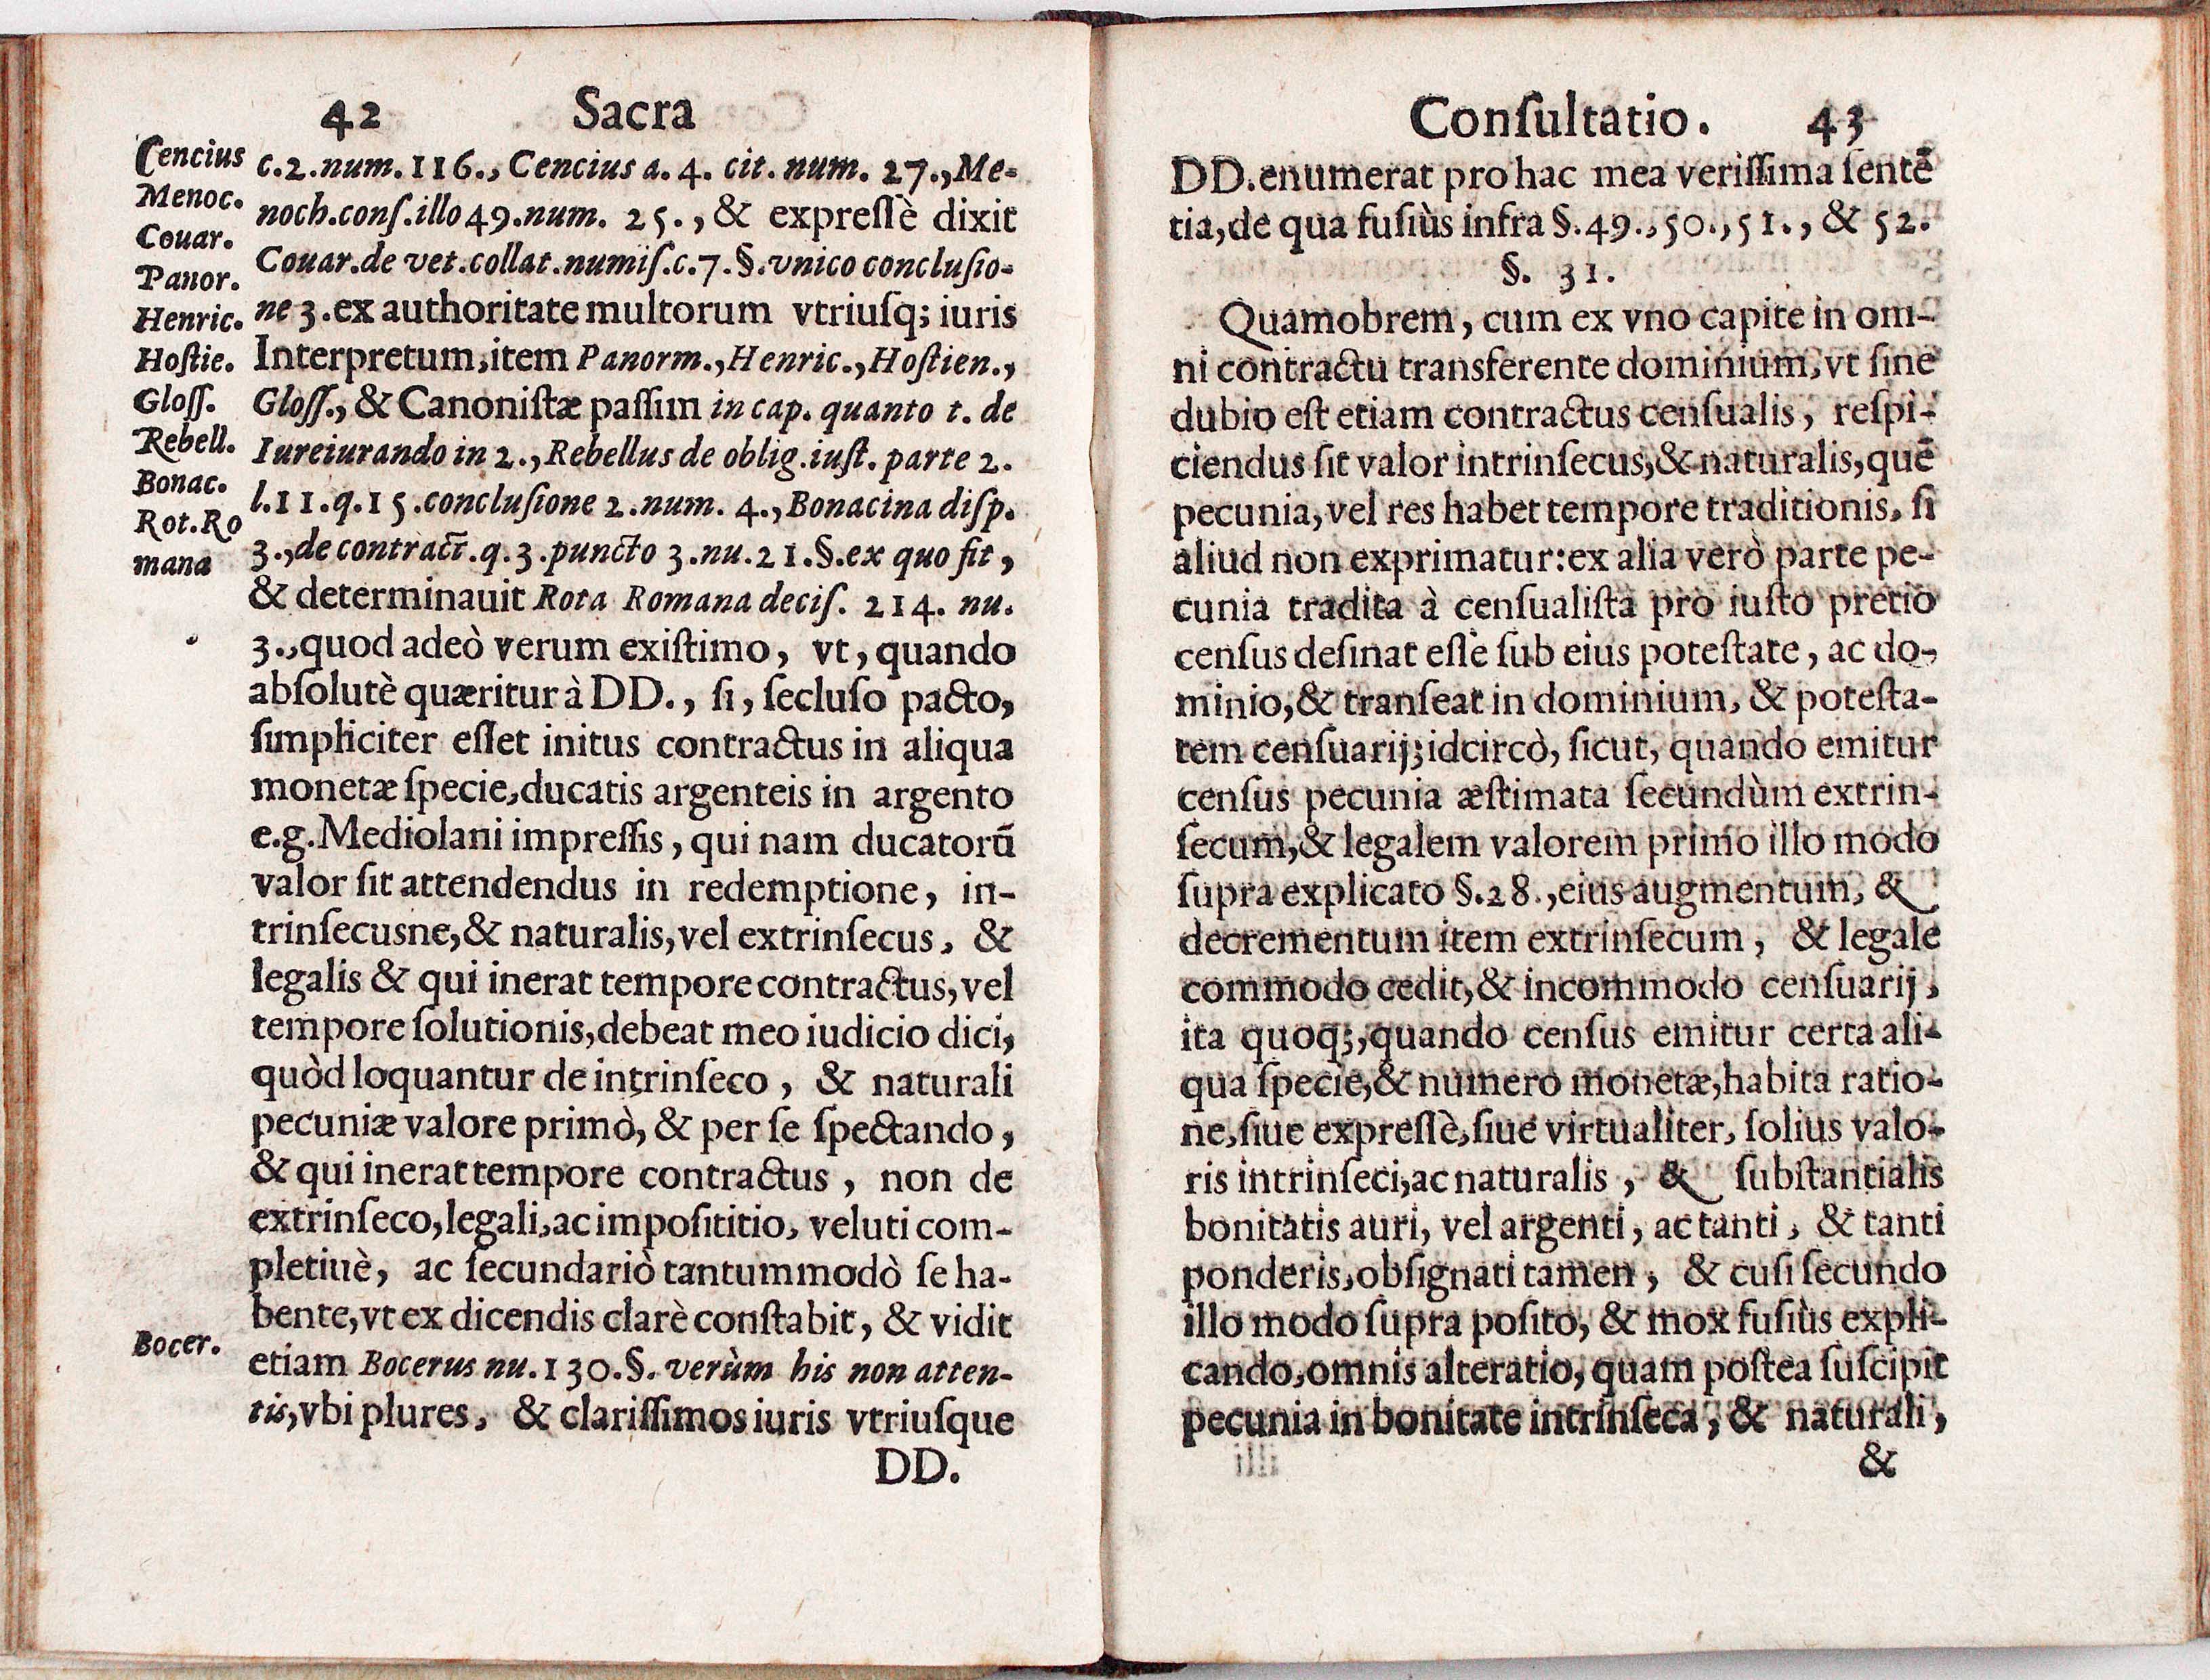 42 Sacra
Cencius
Menoc.
Couar.
Panor.
Henric.
Hoſtie.
Gloſſ.
Rebell.
Bonac.
Rot.Ro
mana
c.2.num.116., Cencius a. 4. cit. num. 27.,Me-
noch.conſ.illo 49.num. 25., & expreſſè dixit
Couar.de vet.collat.numiſ.c.7.§.vnico concluſio-
ne 3.ex authoritate multorum vtriuſq; iuris
Interpretum,item Panorm.,Henric.,Hoſtien.,
Gloſſ., & Canoniſtæ paſſim in cap. quanto t. de
Iureiurando in 2.,Rebellus de oblig.iuſt. parte 2.
l.11.q.15.concluſione 2.num. 4.,Bonacina diſp.
3.,de contract̄.q.3.puncto 3.nu.21.§.ex quo fit,
& determinauit Rota Romana deciſ. 214. nu.
3.,quod adeò verum exiſtimo, vt, quando
abſolutè quæritur à DD., ſi, ſecluſo pacto,
ſimpliciter eſſet initus contractus in aliqua
monetæ ſpecie,ducatis argenteis in argento
e.g.Mediolani impreſſis, qui nam ducatorū
valor ſit attendendus in redemptione, in-
trinſecusne,& naturalis,vel extrinſecus, &
legalis & qui inerat tempore contractus,vel
tempore ſolutionis,debeat meo iudicio dici,
quòd loquantur de intrinſeco, & naturali
pecuniæ valore primò, & per ſe ſpectando,
& qui inerat tempore contractus, non de
extrinſeco,legali,ac impoſititio, veluti com-
pletiuè, ac ſecundariò tantummodò ſe ha-
bente,vt ex dicendis clarè conſtabit, & vidit
Bocer.
etiam Bocerus nu.130.§. verùm his non atten-
tis,vbi plures, & clariſſimos iuris vtriuſque
DD.
Conſultatio. 43
DD.enumerat pro hac mea veriſſima ſentē
tia,de qua fuſiùs infra §.49.,50.,51., & 52.
§. 31.
Quamobrem, cum ex vno capite in om-
ni contractu transferente dominium,vt ſine
dubio eſt etiam contractus cenſualis, reſpi-
ciendus ſit valor intrinſecus,& naturalis,quē
pecunia, vel res habet tempore traditionis, ſi
aliud non exprimatur:ex alia verò parte pe-
cunia tradita à cenſualiſta pro iuſto pretio
cenſus deſinat eſſe ſub eius poteſtate, ac do-
minio,& tranſeat in dominium, & poteſta-
tem cenſuarij;idcircò, ſicut, quando emitur
cenſus pecunia æſtimata ſecundùm extrin-
ſecum,& legalem valorem primo illo modo
ſupra explicato §.28.,eius augmentum, &
decrementum item extrinſecum, & legale
commodo cedit,& incommodo cenſuarij,
ita quoq;,quando cenſus emitur certa ali-
qua ſpecie,& numero monetæ,habita ratio-
ne,ſiue expreſſè,ſiue virtualiter, ſolius valo-
ris intrinſeci,ac naturalis, & ſubſtantialis
bonitatis auri, vel argenti, ac tanti, & tanti
ponderis,obſignati tamen, & cuſi ſecundo
illo modo ſupra poſito, & mox fuſiùs expli-
cando,omnis alteratio, quam poſtea ſuſcipit
pecunia in bonitate intrinſeca, & naturali,
&